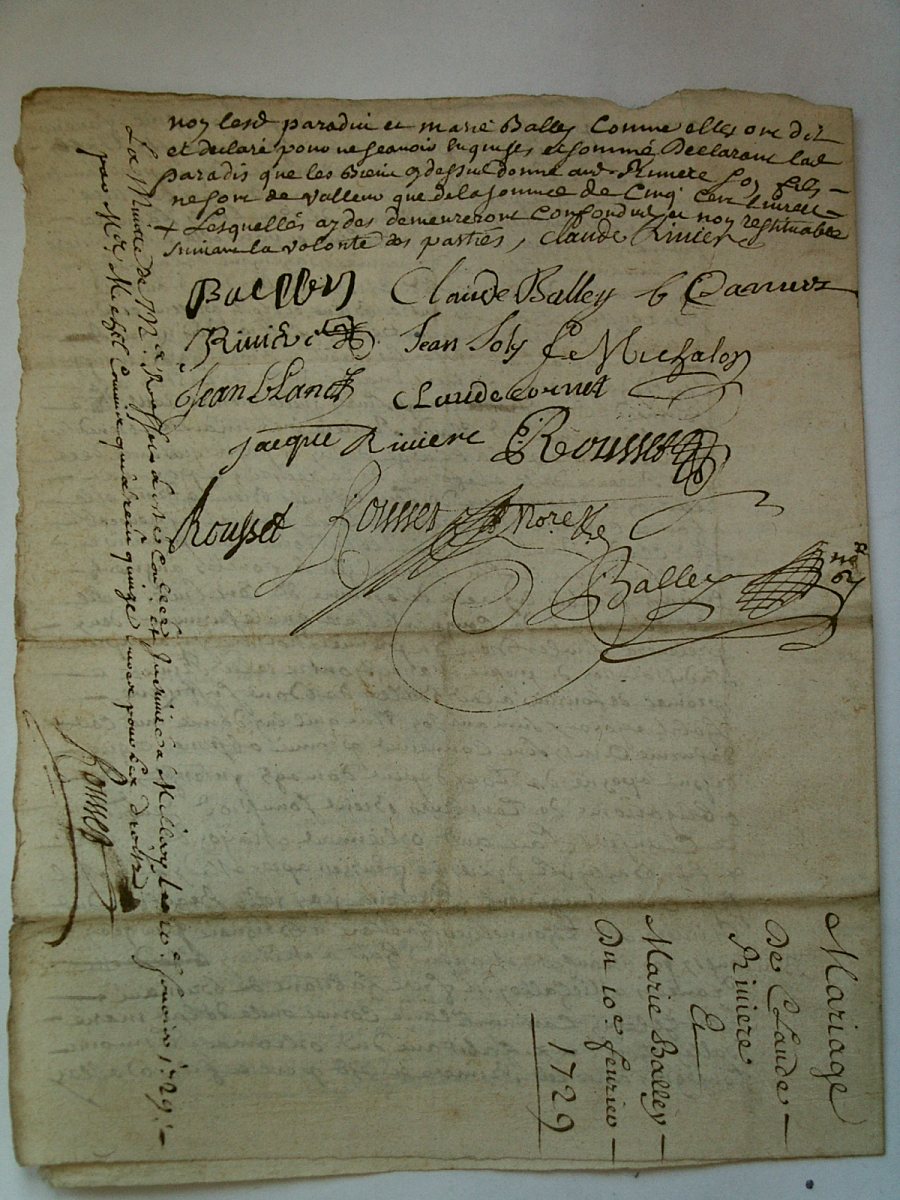 non lesd paradin et marie Balley Comme elles ont dit
et declaré pour ne scavoir enquises et sommé Declarant lad
paradis que les Biens cy dessus donné aud Riviere son fils
ne sont de valleur que de la somme de Cinq Cent livres
+ Lesquelles aydes demeureront confondus et non restituable
suivant la volonte des parties, Claude Riviere
Balley Claude Balley
Riviere Jean Joly Michalon
Jean blanc claude cornet
jacque Riviere Rousset
Rousset Rousset morel
Balley
La Minute de Me Rousset a esté Collée et Insinué a Millery
1729
par Me Comme quinze livres pour les droits
Rousset
Mariage
De Claude
Riviere
Et
Marie Balley
Du 10e feurier
1729